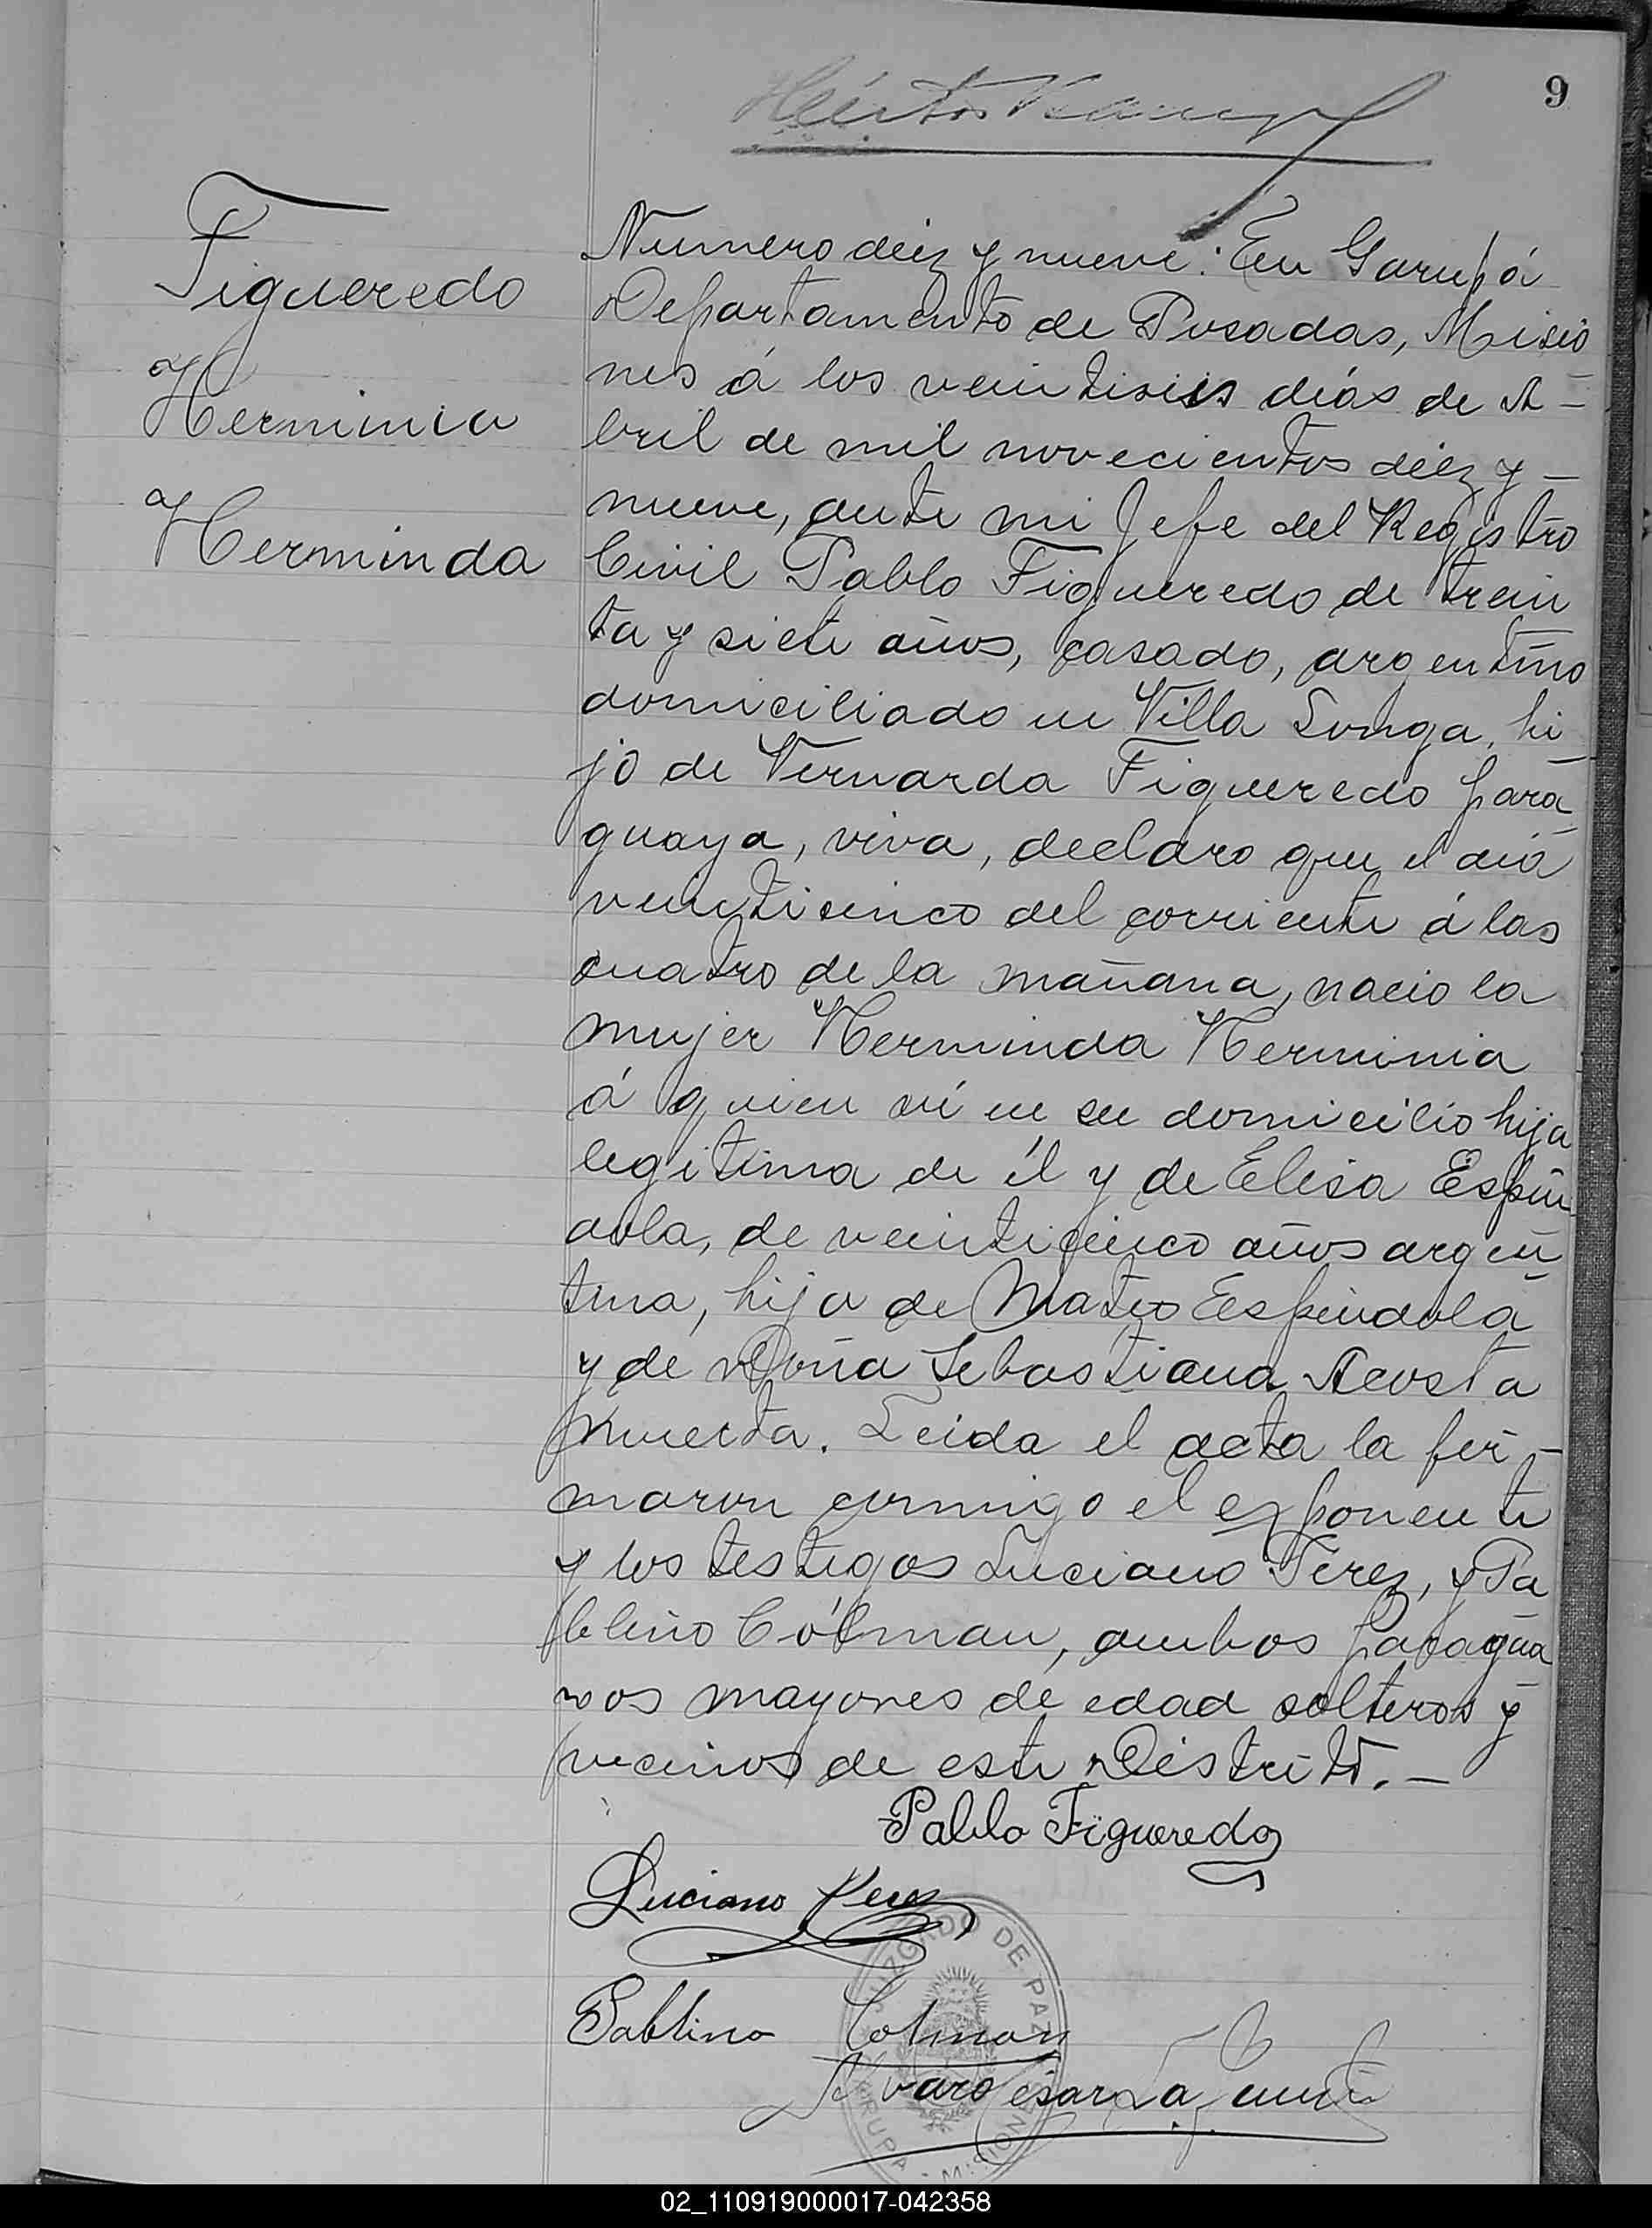 9
Héctor
Figueredo
Herminia
Herminda
Numero diez y nueve: En Garupá
Departamento de Posadas, Misio
nes á los veintiseis días de A-
bril de mil novecientos diez y -
nueve, ante mi Jefe del Registro
Civil Pablo Figueredo de trein
ta y siete años, casado, argentino
domiciliado en Villa Longa, hi
jo de Vernarda Figueredo para
guaya, viva, declaro que el día
veinticinco del corriente á las
cuatro de la mañana, nacio la
mujer Herminda Herminia
á quien ví en su domicilio hija
legitima de él y de Elisa Espín
dola, de veinticinco años argen
tina, hija de Mateo Espindola
y de Doña Sebastiana Acosta
muerta. Leida el acta la fir-
maron conmigo el exponente
y los testigos Luciano Perez, y Pa
blino Cólman, ambos paragua
yos mayores de edad solteros y
vecinos de este Distrito. -
Pablo Figueredo
Luciano Perez
Pablino Colman
Alvaro Cesar La
JUZGADO DE PAZ
GARUPA - MISIONES
02_110919000017-042358